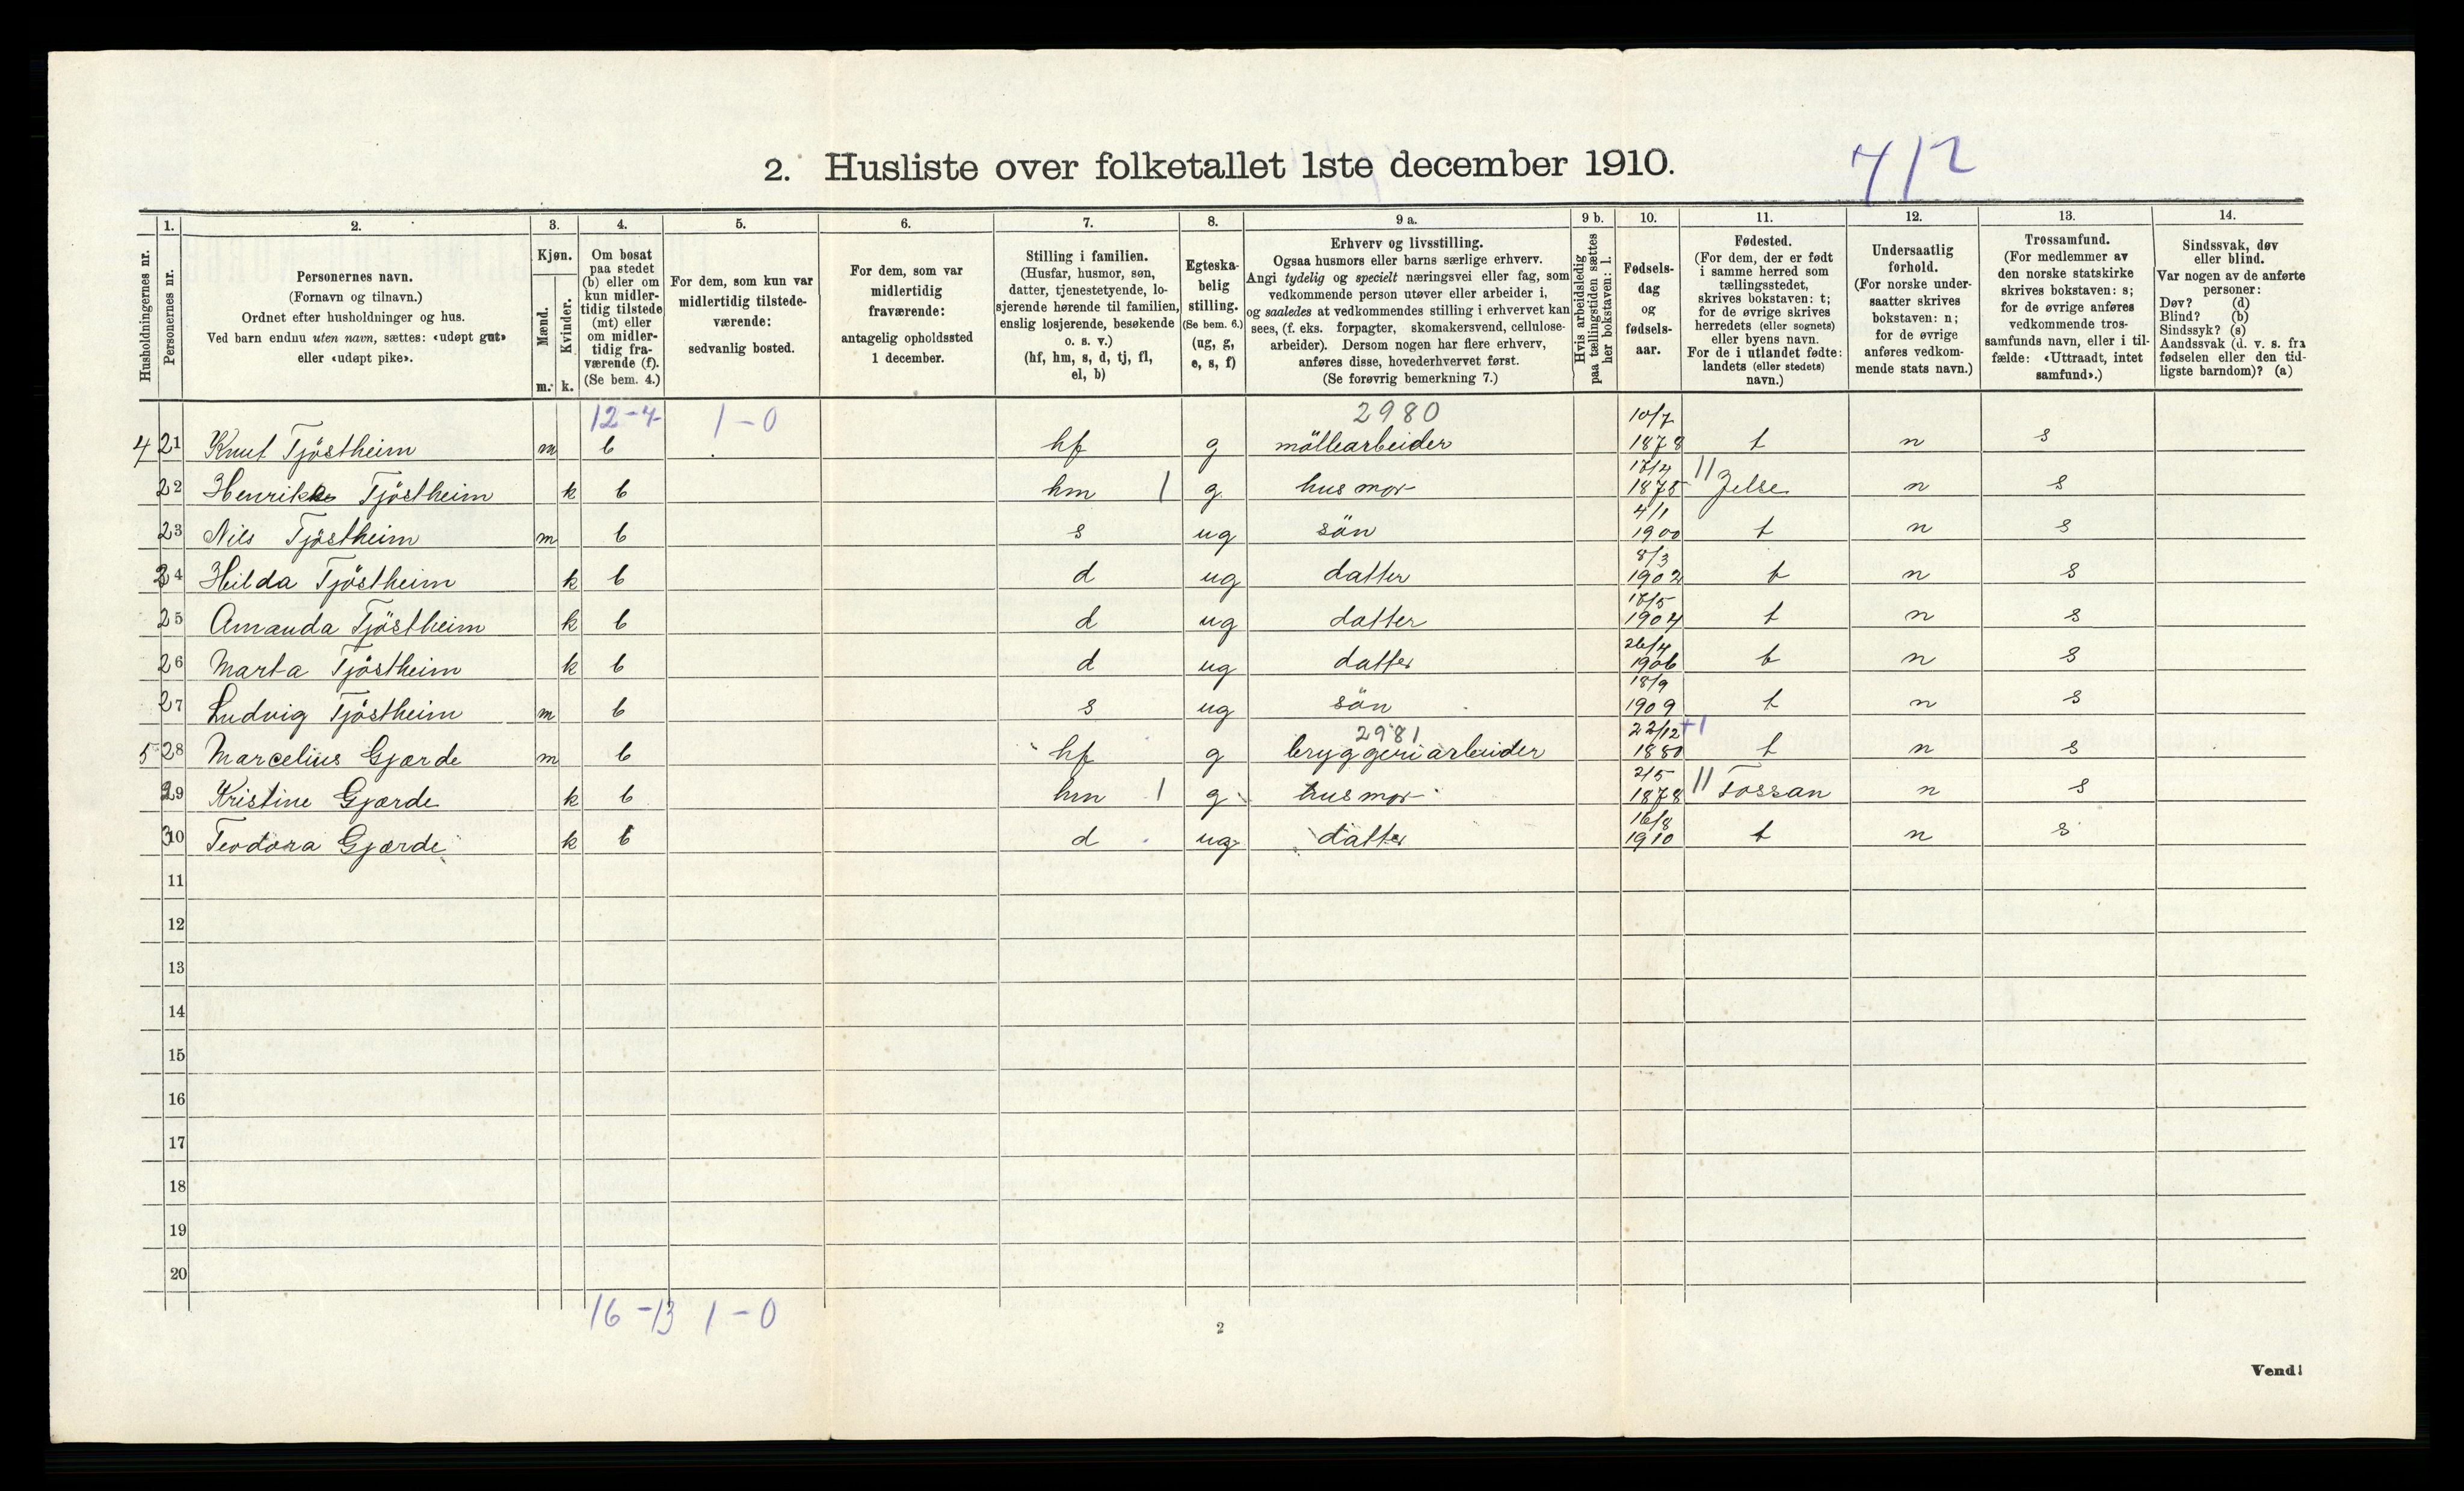 2. Husliste over folketallet 1ste december 1910.
7/2
Husholdningernes nr.
1.
Personernes nr.
2.
Personernes navn.
(Fornavn og tilnavn.)
Ordnet efter husholdninger og hus.
Ved barn endnu uten navn, sættes: «udøpt gut»
eller «udøpt pike».
3.
Kjøn.
Mænd.
Kvinder.
m. k.
4.
Om bosat
paa stedet
(b) eller om
kun midler-
tidig tilstede
(mt) eller
om midler-
tidig fra-
værende (f).
(Se bem. 4.)
5.
For dem, som kun var
midlertidig tilstede-
værende:
sedvanlig bosted.
6.
For dem, som var
midlertidig
fraværende:
antagelig opholdssted
1 december.
7.
Stilling i familien.
(Husfar, husmor, søn,
datter, tjenestetyende, lo-
sjerende hørende til familien,
enslig losjerende, besøkende
o. s. v.)
(hf, hm, s, d, tj, fl,
el, b)
8.
Egteska-
belig
stilling.
(Se bem. 6.)
(ug, g,
e, s, f)
9 a.
Erhverv og livsstilling.
Ogsaa husmors eller barns særlige erhverv.
Angi tydelig og specielt næringsvei eller fag, som
vedkommende person utøver eller arbeider i,
og saaledes at vedkommendes stilling i erhvervet kan
sees, (f. eks. forpagter, skomakersvend, cellulose-
arbeider). Dersom nogen har flere erhverv,
anføres disse, hovederhvervet først.
(Se forøvrig bemerkning 7.)
9 b.
Hvis arbeidsledig
paa tællingstiden sættes
her bokstaven: l.
10.
Fødsels-
dag
og
fødsels-
aar.
11.
Fødested.
(For dem, der er født
i samme herred som
tællingsstedet,
skrives bokstaven: t;
for de øvrige skrives
herredets (eller sognets)
eller byens navn.
For de i utlandet fødte:
landets (eller stedets)
navn.)
12.
Undersaatlig
forhold.
(For norske under-
saatter skrives
bokstaven: n;
for de øvrige
anføres vedkom-
mende stats navn.)
13.
Trossamfund.
(For medlemmer av
den norske statskirke
skrives bokstaven: s;
for de øvrige anføres
vedkommende tros-
samfunds navn, eller i til-
fælde: «Uttraadt, intet
samfund».)
14.
Sindssvak, døv
eller blind.
Var nogen av de anførte
personer:
Døv? (d)
Blind? (b)
Sindssyk? (s)
Aandssvak (d. v. s. fra
fødselen eller den tid-
ligste barndom)? (a)
12-4 1-0 2980 10/7
4 21 Knut Tjöstheim m b hf g möllearbeider 1878 t n s
17/4
22 Henrikke Tjöstheim k b hm 1 g husmor 1875 // Jelse n s
4/1
23 Nils Tjöstheim m b s ug sön 1900 t n s
8/3
24 Hilda Tjöstheim k b d ug datter 1902 t n s
17/5
25 Amanda Tjöstheim k b d ug datter 1904 t n s
26/4
26 Marta Tjöstheim k b d ug datter 1906 t n s
18/9
27 Ludvig Tjöstheim m b s ug sön 1909 t n s
2981 22/12 +1
5 28 Marcelius Gjærde m b hf g bryggeriarbeider 1880 t n s
2/5
29 Kristine Gjærde k b hm 1 g husmor 1878 // Fossan n s
16/8
30 Teodora Gjærde k b d ug datter 1910 t n s
11
12
13
14
15
16
17
18
19
20
16-13 1-0
2
Vend!